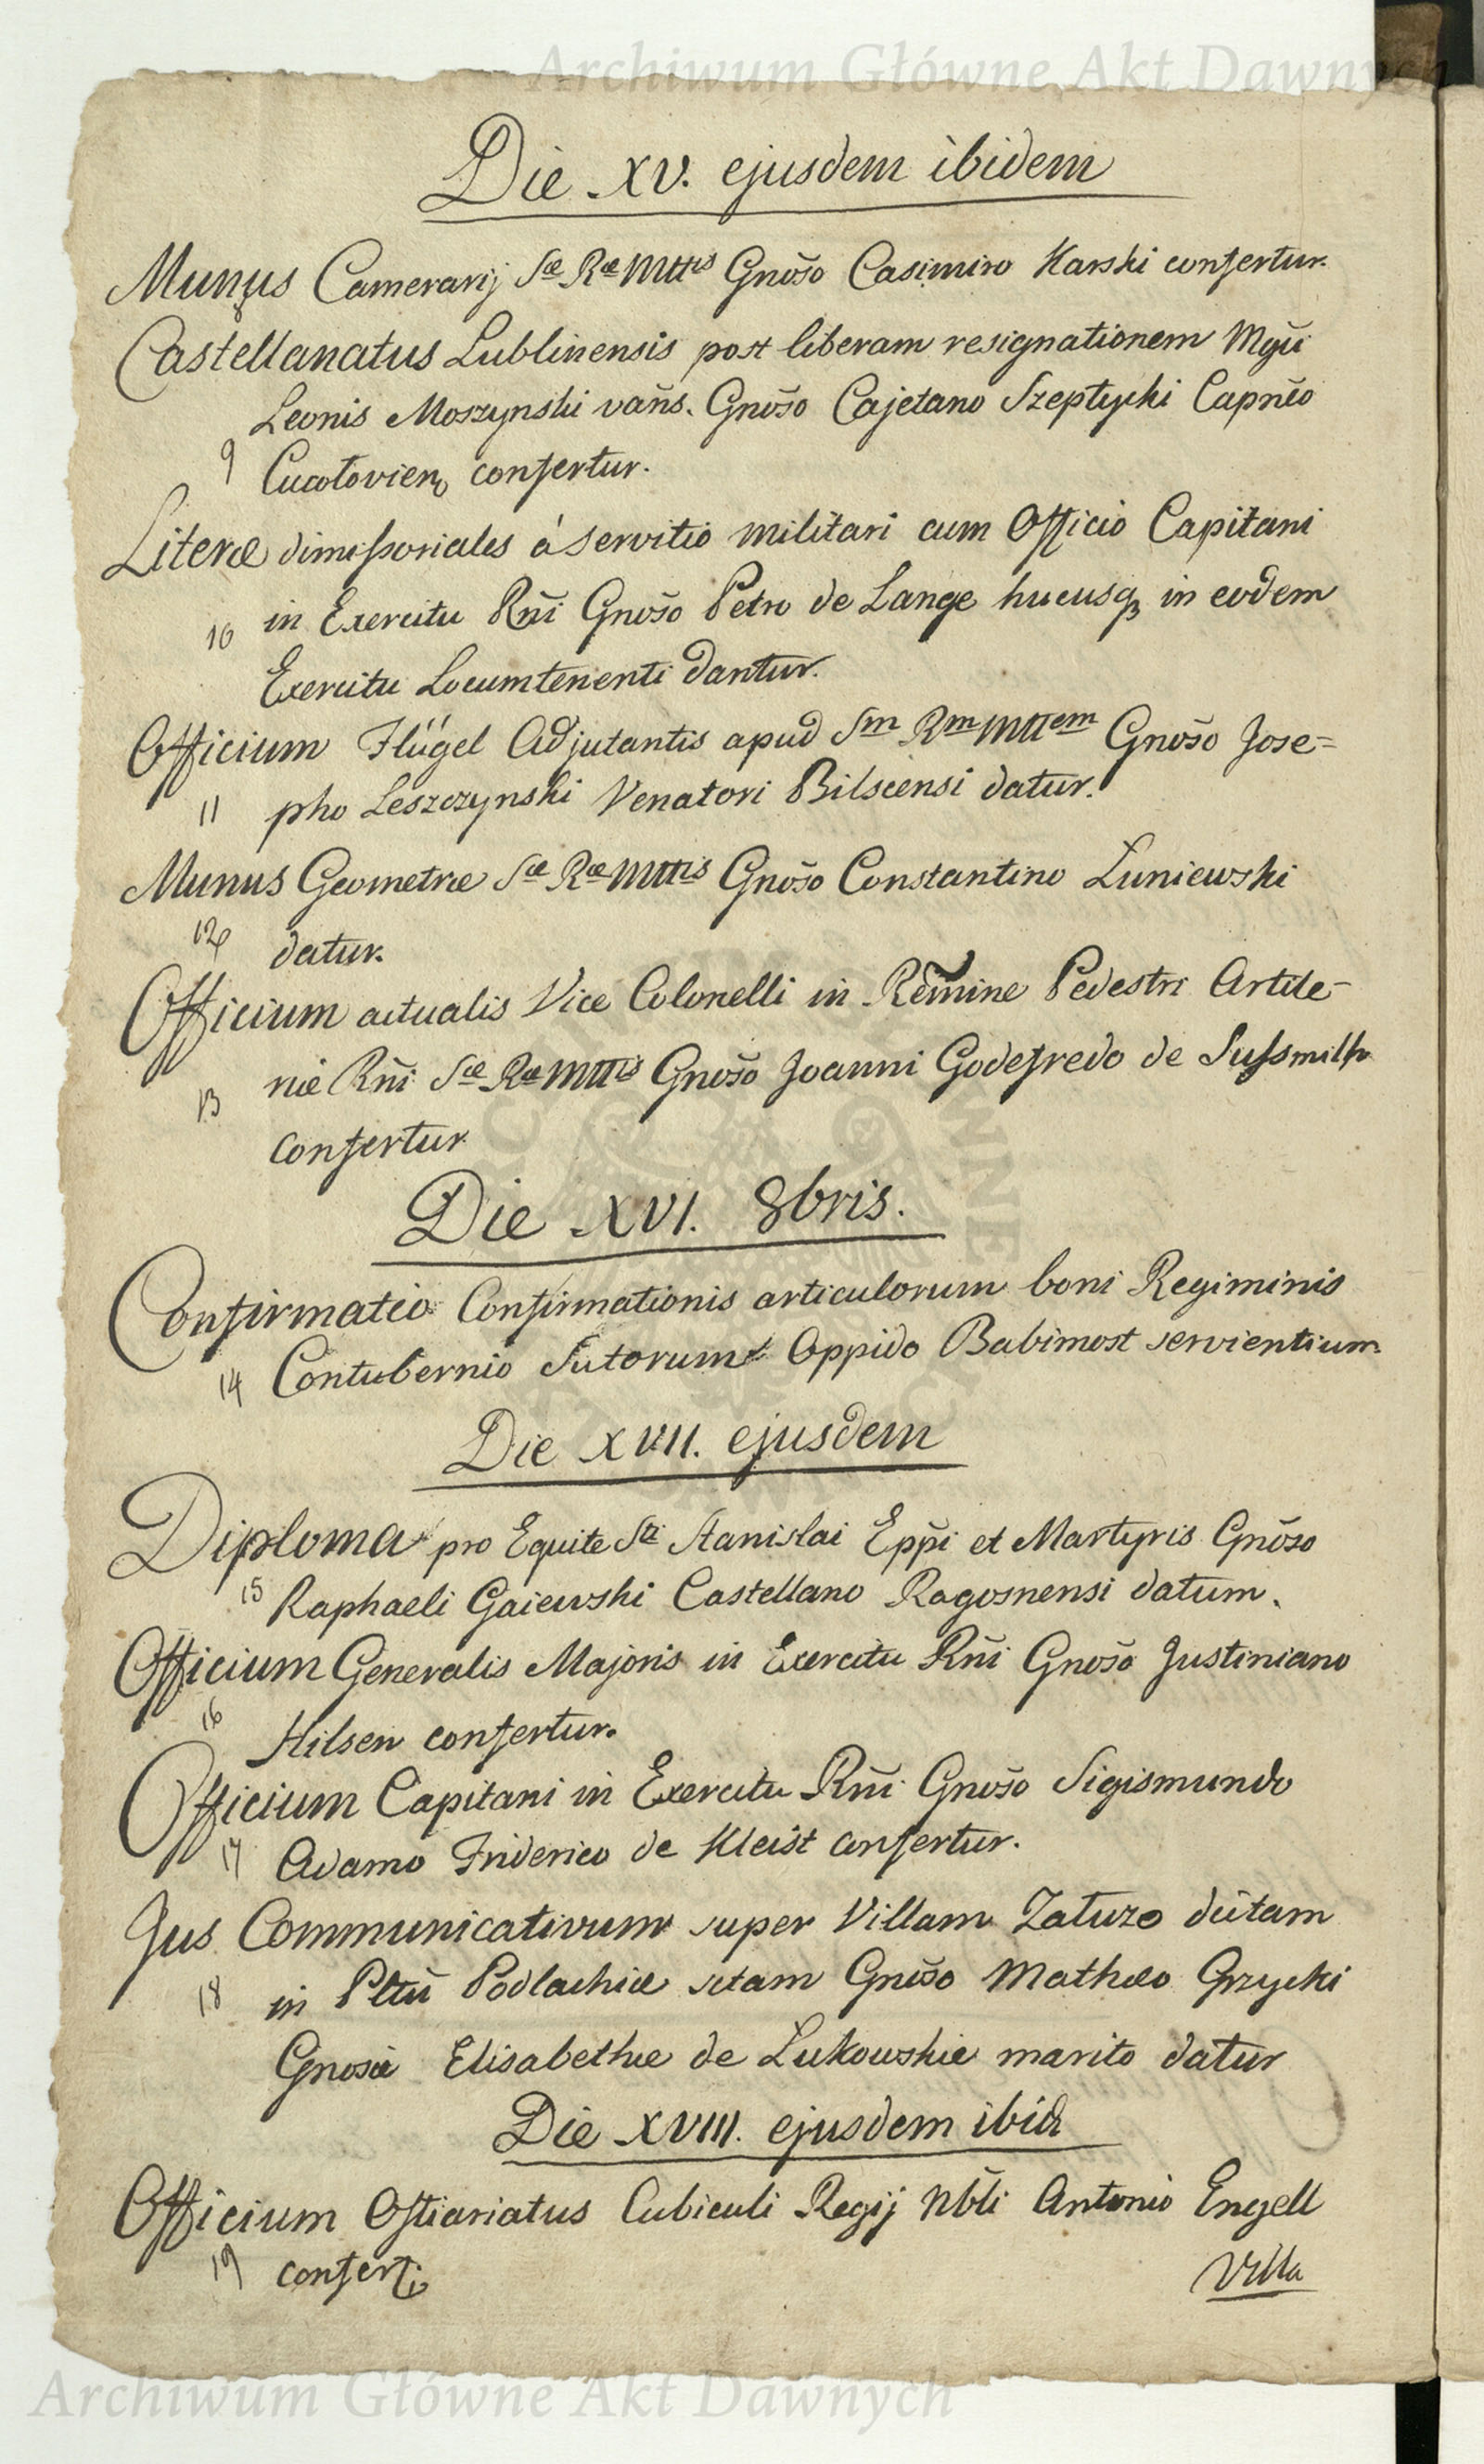 Archiwum Główne Akt Dawnych
Die XV. ejusdem ibidem
Munus Camerarij Sæ Ræ Mttis Gnõso Casimiro Karski confertur.
8
Castellanatus Lublinensis post liberam resignationem Mgũi
Leonis Moszynski vañs. Gnõso Cajetano Szeptycki Capnẽo
9 confertur.
Literæ dimissoriales á servitio militari cum Officio Capitani
10 in Exercitu Rñi Gnõso Petro de Lange hucusq in eodem
Exercitu Locumtenenti dantur.
Officium Flügel Adjutantis apud Sm Rm Mttem Gnõso Jose=
11 pho Leszczynski Venatori Bilscensi datur.
Munus Geometræ Sæ Ræ Mttis Gnõso Constantino Łuniewski
12 datur.
Officium actualis Vice Colonelli in Reg̃mine Pedestri Artile-
13 riæ Rñi Sæ Ræ Mttis Gnõso Joanni Godefredo de Sussmilh
confertur
Die XVI. 8bris.
Confirmatio Confirmationis articulorum boni Regiminis
14 Contubernio Sutorum Oppido Babimost servientium.
Die XVII. ejusdem
Diploma pro Equite Sti Stanislai Epp̃i et Martyris Gnõso
15 Raphaeli Gaiewski Castellano Rogosnensi datum.
Officium Generalis Majoris in Exercitu Rñi Gnõso Justiniano
16 Hilsen confertur.
Officium Capitani in Exercitu Rñi Gnõso Sigismundo
17 Adamo Friderico de Kleist confertur.
Jus Communicativum super Villam Zaturzo dictam
18 in Pltũ Podlachiæ sitam Gnõso Mathæo Grzycki
Gnosæ Elisabethæ de Łukowskie marito datur
Die XVIII. ejusdem ibid
Officium Ostiariatus Cubiculi Regij Nbli Antonio Engell
19 confert:
Villa
Archiwum Główne Akt Dawnych